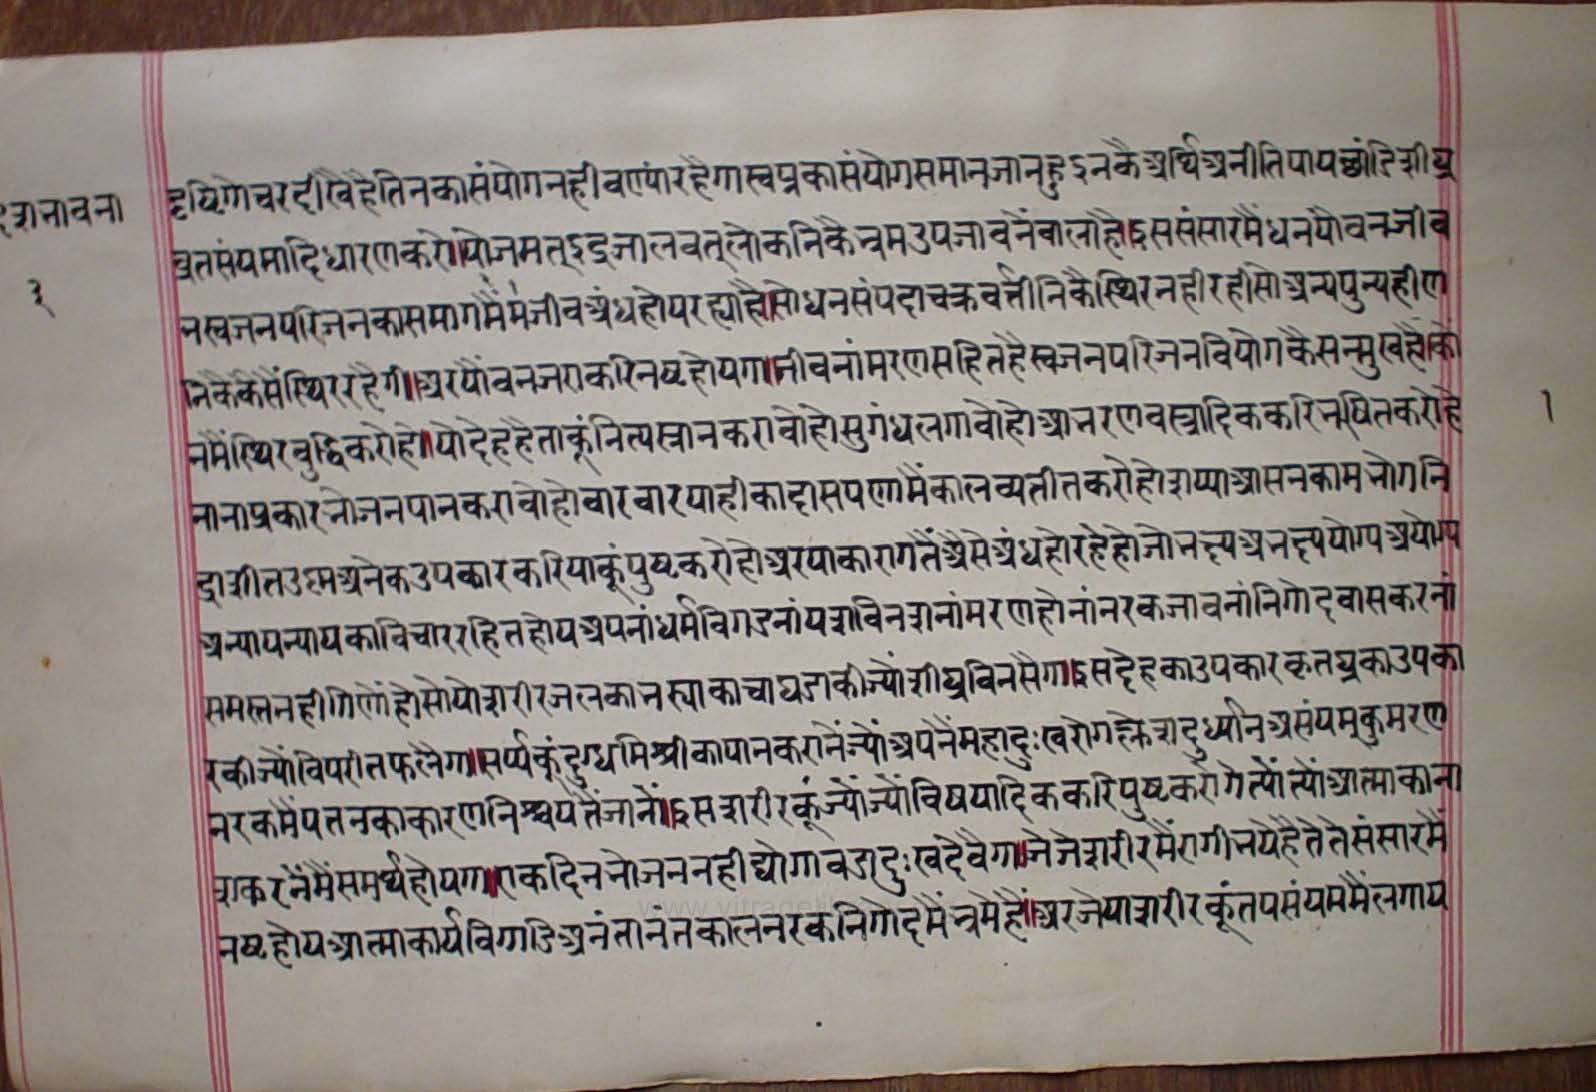 दृष्टिगोचर दीखै है तिनका संयोग नही वण्यां रहैगा स्वप्नका संयोग समान जानहु इनकै अर्थि अनीति पाप छांडि शीघ्र
व्रत संयमादि धारण करो। यो जगत् इंद्रजालवत् लोकनिकै भ्रम उपजावनैंवाला है। इस संसारमैं धन यौवन जीव
न स्वजन परिजनका समागममैं जीव अंध होय रह्या है। सो धन संपदा चक्रवर्त्तीनिकै स्थिर नही रही सो अन्य पुन्यहीण
निकै कैसैं स्थिर रहैगी। अर यौवन जराकरि नष्ट होयगा। जीवनां मरण सहित है स्वजन परिजन वियोगकै सन्मुख है। को
नमैं स्थिर बुद्धि करो हो। यो देह है ताकूं नित्य स्नान करावो हो सुगंध लगावो हो आभरण वस्त्रादिककरि भूषित करो हो
नाना प्रकार भोजन पान करावो हो वारवार याहीका दासपणामैं काल व्यतीत करो हो शय्या आसन काम भोग नि
द्रा शीत उष्म अनेक उपकारकरि याकूं पुष्ट करो हो अर याका रागतैं अैसे अंध हो रहे हो जो भक्ष्य अभक्ष्य योग्य अयोग्य
अन्याय न्यायका विचार रहित होय अपनां धर्म विगडनां यश विनशनां मरण होनां नरक जावनां निगोद वास करनां
समस्त नही गिणों हो सो यो शरीर जलका भर्‍या काचा घडाकी ज्यों शीघ्र विनसैगा। इस देहका उपकार कृतघ्नका उपका
रकी ज्यों विपरीत फलैगा। सर्प्पकूं दुग्ध मिश्रीका पान करानें ज्यों अपनें महादुःख रोग क्लेश दुर्ध्यान असंयम कुमरण
नरकमैं पतनका कारण निश्चयतैं जानों। इस शरीरकूं ज्यों ज्यों विषयादिककरि पुष्ट करोगे त्यों त्यों आत्माका ना
श करनेंमैं समर्थ होयगा। एक दिन भोजन नही द्योगा वडा दुःख देवैगा। जे जे शरीरमैं रागी भये है ते ते संसारमैं
नष्ट होय आत्माकार्य विगाडि अनंतानंत काल नरक निगोदमैं भ्रमे हैं। अर जे या शरीरकूं तप संयममैं लगाय
१